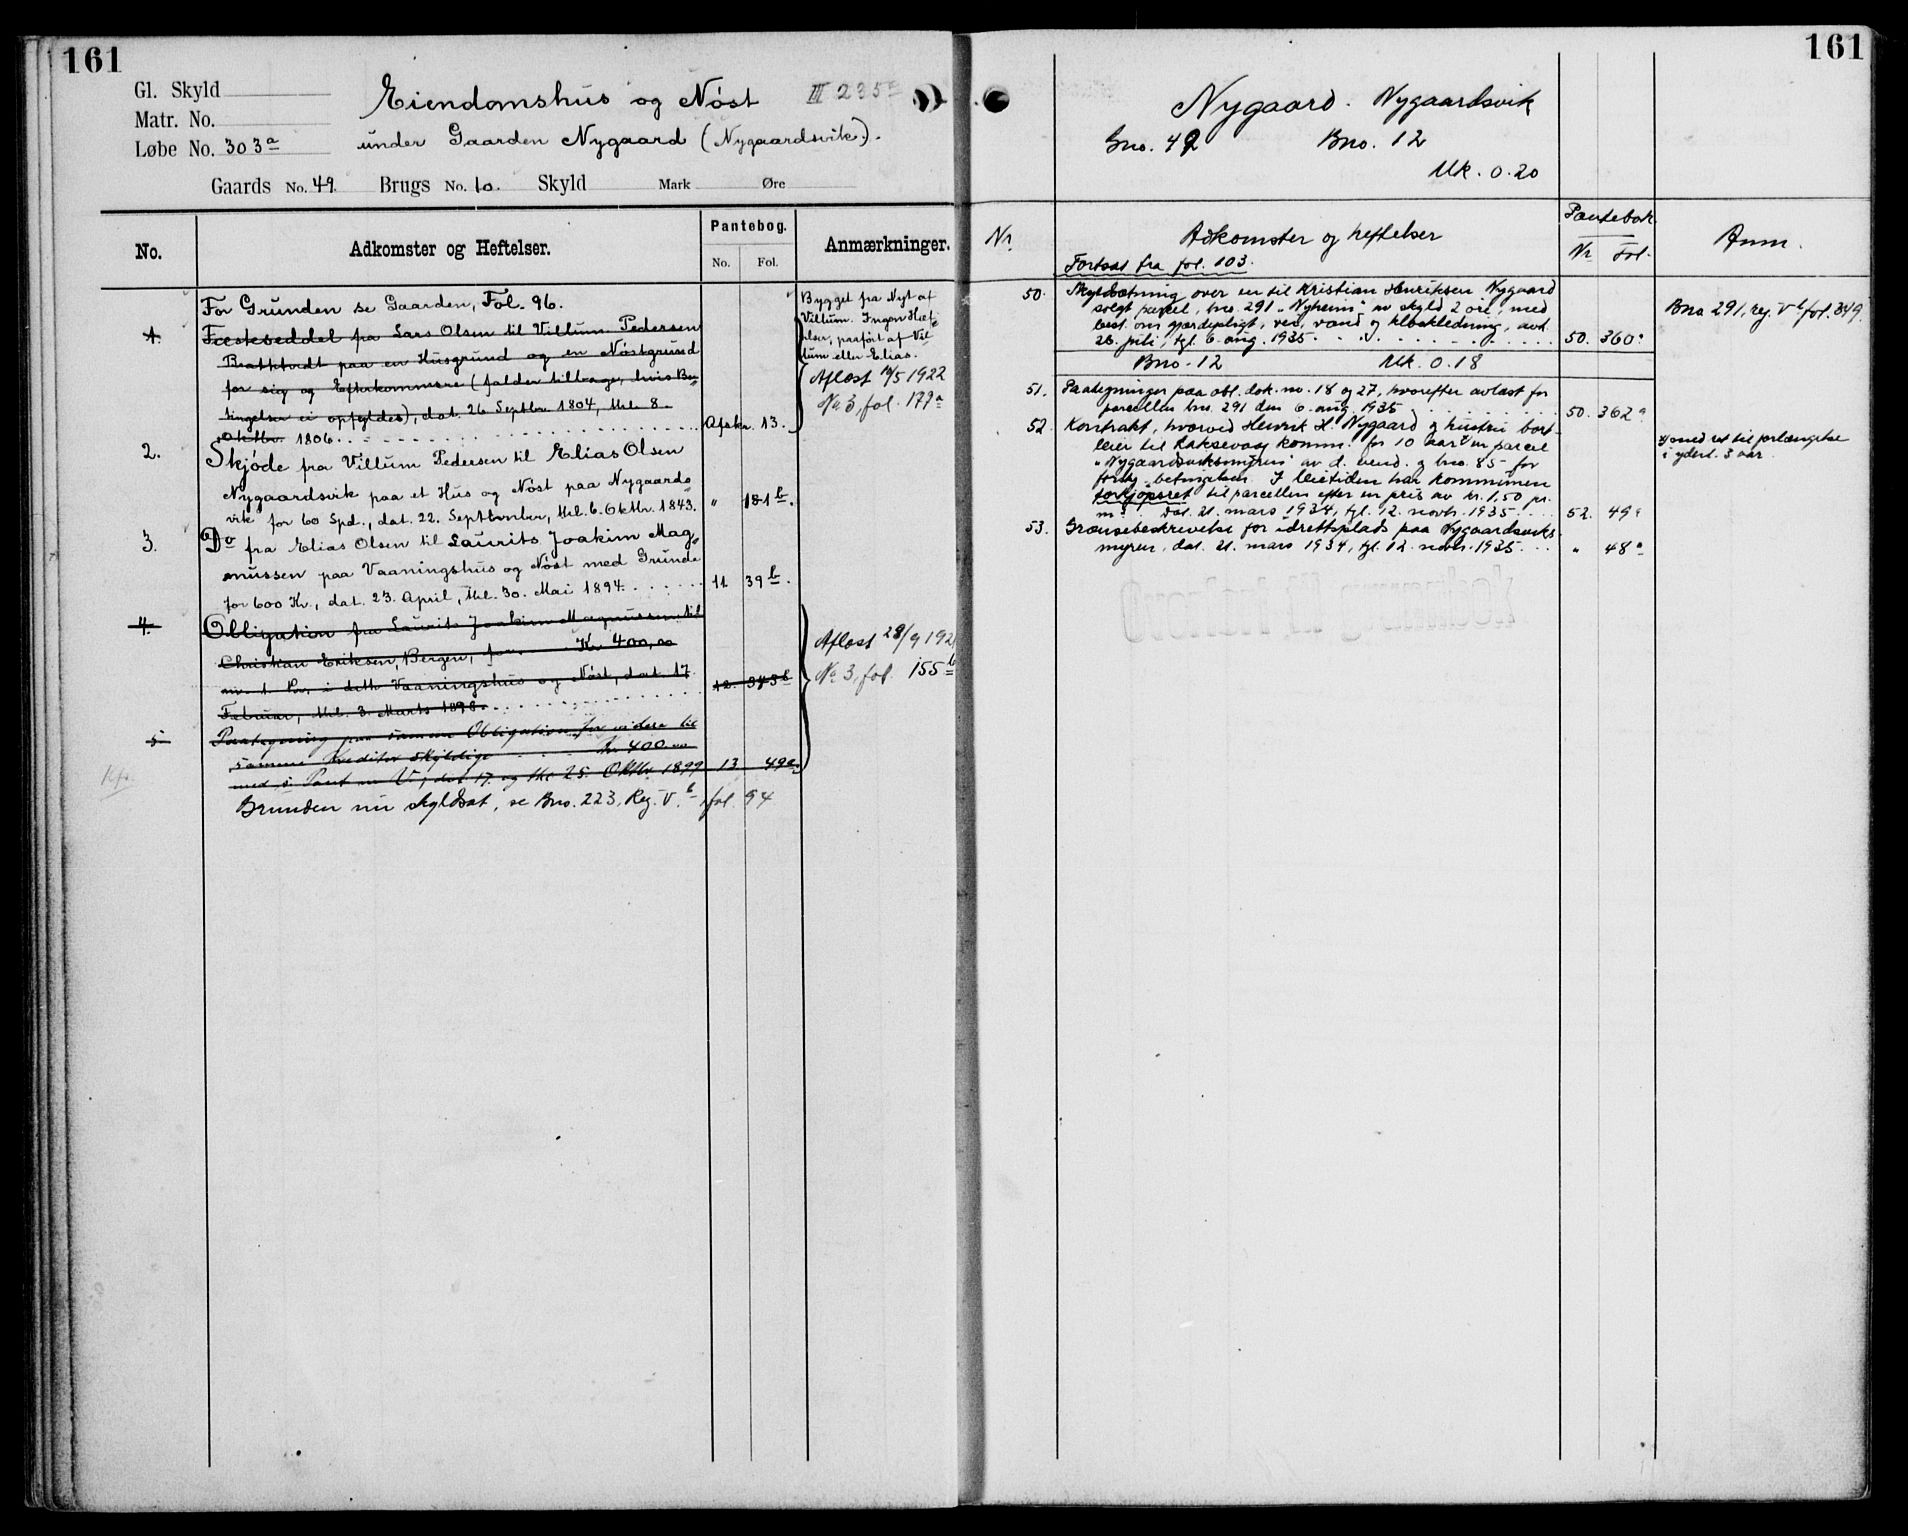 161
Gl. Skyld
Matr. No.
Løbe No. 303a
Eiendomshus og Nøst
III 235a
under Gaarden Nygaard (Nygaardsvik).
Gaards No. 49. Brugs No. 10. Skyld Mark Øre
No. Adkomster og Heftelser. Pantebog. No. Fol. Anmærkninger.
For Grunden se Gaarden, Fol. 96.
1. Fæsteseddel fra Lars Olsen til Villum Pedersen
Brathholdt paa en Husgrund og en Nøstgrund
for sig og Efterkommere (falder tilbage, hvis Be-
tingelser ei opfyldes), dat. 26 Septbr. 1804, thl. 8
Oktbr. 1806. Afskr. 13.
Bygget fra Nyt af
Villum. Ingen Hæf-
telser, paaført af Vil-
lum eller Elias.
Aflæst 19/5 1922
No 3, fol. 177a
2. Skjøde fra Villum Pedersen til Elias Olsen
Nygaardsvik paa et Hus og Nøst paa Nygaards
vik for 60 Spd., dat. 22. September, thl. 6. Oktbr. 1843. " 181b.
3. Do fra Elias Olsen til Laurits Joakim Mag-
nussen paa Vaaningshus og Nøst med Grunde
for 600 Kr., dat. 23. April, thl. 30. Mai 1894. 11 39b.
4. Obligation fra Laurits Joakim Magnussen til
Christian Eriksen, Bergen, for Kr 400,00
m. 1. Pr. i dette Vaaningshus og Nøst, dat. 17
Februar, thl. 3. Marts 1898. 12. 343b
Aflæst 28/9 192
No 3, fol. 155b
5 Paategning paa samme Obligation for videre til
samme Kreditor skyldige Kr 400.00
med s. Pant, dat. 17 og thl 25. Oktbr 1899 13 49a.
Kfr.
Grunden nu skyldsat, se Bno. 223, Reg. V.b fol. 94
161
Nygaard. Nygaardsvik
Gno. 49 Bno. 12
Mk. 0.20
Nr. Adkomster og heftelser Pantebok Nr Fol. Anm.
Fortsat fra fol. 103.
50. Skyldsætning over en til Kristian Henriksen Nygaard
solgt parcel, bno. 291 „Nyheim" av skyld 2 øre, med
best. om gjærdepligt, vei, vand og kloakledning, avh.
26. juli, tgl. 6. aug. 1935 50. 360a
Bno 291, reg. Vb fol. 349.
Bno. 12 Mk. 0.18
51. Paategninger paa obl. dok. no. 18 og 27, hvorefter avlæst for
parcellen bno. 291 den 6. aug. 1935 50. 362a
52. Kontrakt, hvorved Henrik H. Nygaard og hustru bort-
leier til Laksevaag komm. for 10 aar x) en parcel
„Nygaardsviksmyren" av d. eiend. og bno. 85 for
betingelser. I leietiden har kommunen
forkjøpsret til parcellen efter en pris av kr. 1,50 pr.
m2. Dat. 21. mars 1934, tgl. 12. novbr. 1935. 52. 49a
x) med ret til forlængelse
i yderl. 3 aar
53. Grænsebeskrivelse for idrettsplads paa Nygaardsviks-
myren, dat. 21. mars 1934, tgl. 12. novbr. 1935. " 48a